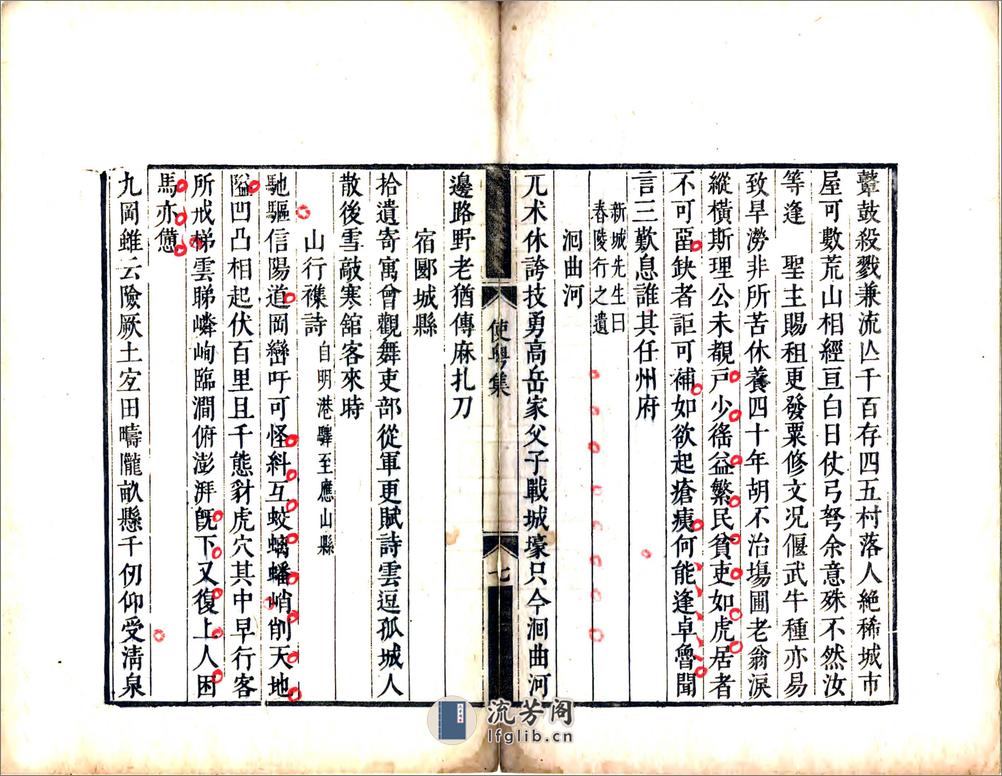 鼙鼓殺戮兼流亾千百存四五村落人絶稀城市
屋可數荒山相經亘白日仗弓弩余意殊不然汝
等逢　聖主賜租更發粟修文况偃武牛種亦易
致旱澇非所苦休養四十年胡不治塲圃老翁淚
縱橫斯理公未覩戸少徭益繁民貧吏如虎居者
不可畱缺者詎可補如欲起瘡痍何能逢卓魯聞
言三歎息誰其任州府
新城先生曰
舂陵行之遺
洄曲河
兀术休誇技勇高岳家父子戰城壕只今洄曲河
使粤集
七
邊路野老猶傳麻扎刀
宿郾城縣
拾遺寄寓曾觀舞吏部從軍更賦詩雲逗孤城人
散後雪敲寒舘客來時
山行襍詩自明港驛至應山縣
馳驅信陽道岡巒吁可怪糾互蛟螭蟠峭削天地
隘凹凸相起伏百里且千態豺虎穴其中早行客
所戒梯雲睇嶙峋臨澗俯澎湃旣下又復上人困
馬亦憊
九岡雖云險厥土宐田疇隴畝懸千仞仰受清泉
流芳阁
lfglib.cn